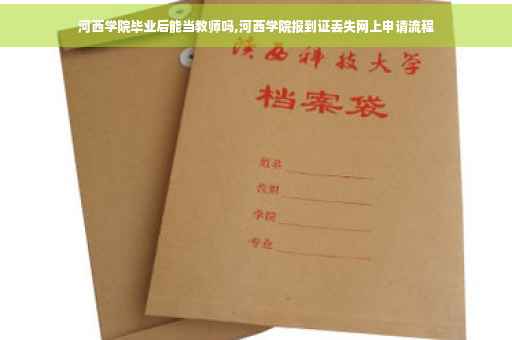 河西学院毕业后能当教师吗,河西学院报到证丢失网上申请流程
陕西科技大学
档案袋
姓名
学院
专业